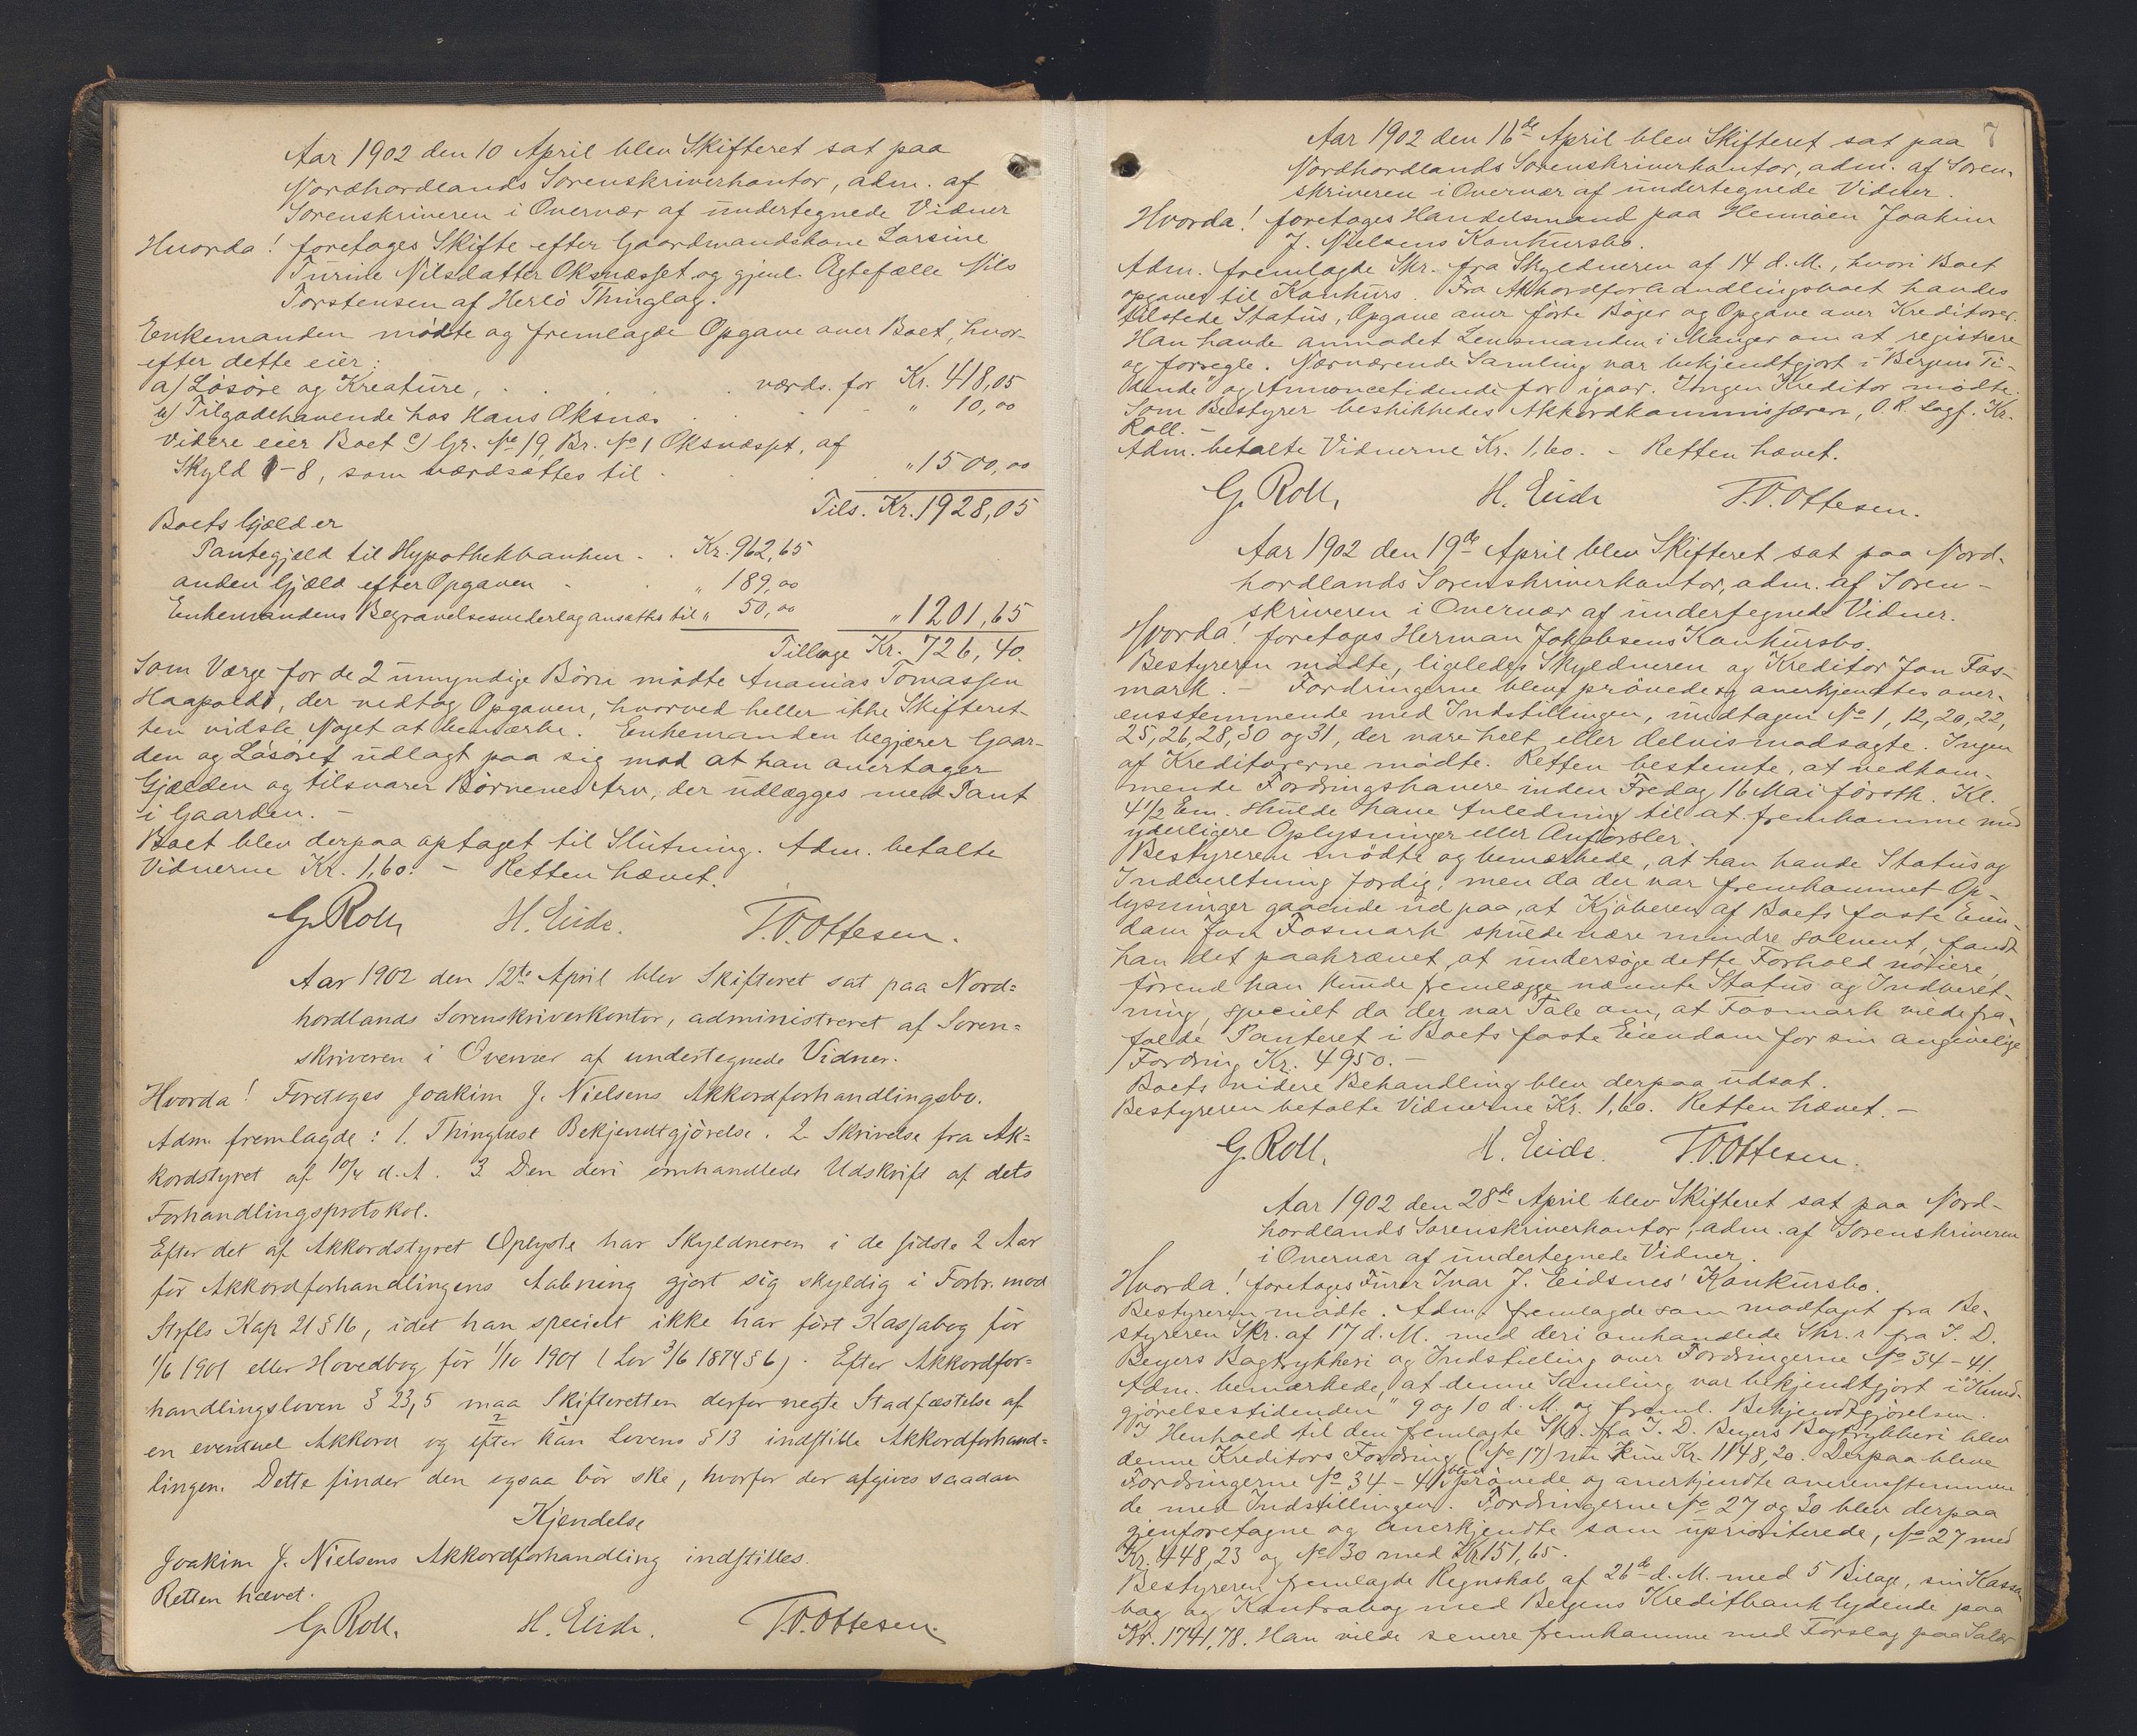 Aar 1902 den 10 April blev Skifteret sat paa
Nordhordlands Sorenskriverkontor, adm. af
Sorenskriveren i Overvær af undertegnede Vidner
Hvorda! foretoges Skifte efter Gaardmandskone Larsine
Turine Nilsdatter Oksnæsset og gjenl. Ægtefælle Nils
Torstensen af Herlö Thinglag.
Enkemanden mödte og fremlagde Opgave over Boet, hvor-
efter dette eier:
a) Lösöre og Kreature, . . . værds. for Kr. 418,05
b) Tilgodehavende hos Hans Oksnæs . . . " 10,00
Videre eier Boet c) Gr. No 19, Br. No 1 Oksnæsset, af
Skyld 1-8, som værdsattes til . . . " 1500,00
Tils. Kr. 1928,05
Boets Gjæld er
Pantegjeld til Hypothekbanken . . Kr. 962,65
anden Gjæld efter Opgaven . . " 189,00
Enkemandens Begravelsesvederlag ansattes til " 50,00 " 1201,65
Tillage Kr. 726,40.
Som Værge for de 2 umyndige Börn mödte Ananias Tomassen
Haapoldö, der vedtog Opgaven, hvorved heller ikke Skifteret-
ten vidste Noget at bemærke. Enkemanden begjærer Gaar-
den og Lösöret udlagt paa sig mod at han overtager
Gjælden og tilsvarer Börnenes Arv, der udlægges med Pant
i Gaarden. -
Boet blev derpaa optaget til Slutning. Adm. betalte
Vidnerne Kr. 1,60. - Retten hævet.
G. Roll, H. Eide. T.O. Ottesen.
Aar 1902 den 12te April blev Skifteret sat paa Nord=
hordlands Sorenskriverkontor, administreret af Soren=
skriveren i Overvær af undertegnede Vidner.
Hvorda! Foretoges Joakim J. Nielsens Akkordforhandlingsbo.
Adm. fremlagde: 1. Thinglæst Bekjendtgjörelse. 2. Skrivelse fra Ak=
kordstyret af 10/4 d. A. 3. Den deri omhandlede Udskrift af dets
Forhandlingsprotokol.
Efter det af Akkordstyret Oplyste har Skyldneren i de sidste 2 Aar
för Akkordforhandlingens Aabning gjort sig skyldig i Forbr. mod
Strfls Kap 21 § 16, idet han specielt ikke har fört Kassabog för
1/6 1901 eller Hovedbog för 1/10 1901 (Lov 3/6 1874 § 6). Efter Akkordfor=
handlingsloven § 23,5 maa Skifteretten derfor negte Stadfæstelse af
en eventuel Akkord og efter kan Lovens § 13 indstille Akkordforhand=
lingen. Dette finder den ogsaa bör ske, hvorfor der afgives saadan
Kjendelse
Joakim J. Nielsens Akkordforhandling indstilles.
Retten hævet.
G. Roll. H. Eide. T.O. Ottesen.
7
Aar 1902 den 16de April blev Skifteret sat paa
Nordhordlands Sorenskriverkontor, adm. af Soren-
skriveren i Overvær af undertegnede Vidner.
Hvorda! foretoges Handelsmand paa Hennöen Joakim
J. Nielsens Konkursbo.
Adm. fremlagde Skr. fra Skyldneren af 14 d. M., hvori Boet
opgaves til Konkurs. Fra Akkordforhandlingsboet havdes
tilstede Status, Opgave over förte Böger og Opgave over Kreditorer.
Han havde anmodet Lensmanden i Manger om at registrere
og forsegle. Nærværende Samling var bekjendtgjort i Bergens Ti-
dende og Annoncetidende for igaar. Ingen Kreditor mödte.
Som Bestyrer beskikkedes Akkordkommissæren, O.R. Sagf. Kr.
Roll. -
Adm. betalte Vidnerne Kr. 1,60. - Retten hævet.
G. Roll, H. Eide T.O. Ottesen.
Aar 1902 den 19de April blev Skifteret sat paa Nord-
hordlands Sorenskriverkontor, adm. af Soren-
skriveren i Overvær af undertegnede Vidner.
Hvorda! foretoges Herman Jakobsens Konkursbo.
Bestyreren mödte, ligeledes Skyldneren og Kreditor Jon Fos-
mark. - Fordringerne blev prövede og anerkjendtes over-
ensstemmende med Indstillingen, undtagen No 1, 12, 20, 22,
25, 26, 28, 30 og 31, der vare helt eller delvis modsagte. Ingen
af Kreditorerne mödte. Retten bestemte, at vedkom-
mende Fordringshavere inden Fredag 16 Mai förstk. Kl.
4 1/2 Em. skulde have Anledning til at fremkomme med
yderligere Oplysninger eller Anförsler.
Bestyreren mödte og bemærkede, at han havde Status og
Indberetning færdig, men da der var fremkommet Op-
lysninger gaaende ud paa, at Kjöberen af Boets faste Eien-
dom Jon Fosmark skulde være mindre solvent, fandt
han det paakrævet, at undersöge dette Forhold nöiere,
förend han kunde fremlægge nævnte Status og Indberet-
ning, specielt da der var Tale om, at Fosmark vilde fra-
falde Panteret i Boets faste Eiendom for sin angivelige
Fordring Kr. 4950. -
Boets videre Behandling blev derpaa udsat.
Bestyreren betalte Vidnerne Kr. 1,60. Retten hævet. -
G. Roll. H. Eide. T.O. Ottesen.
Aar 1902 den 28de April blev Skifteret sat paa Nord-
hordlands Sorenskriverkontor, adm. af Sorenskriveren
i Overvær af undertegnede Vidner.
Hvorda! foretoges Furer Ivar J. Eidsnes' Konkursbo.
Bestyreren mödte. Adm. fremlagde som modtaget fra Be-
styreren Skr. af 17 d. M. med deri omhandlede Skr. fra J. D.
Beyers Bogtrykkeri og Indstilling over Fordringerne No 34-41.
Adm. bemærkede, at denne Samling var bekjendtgjort i "Kund-
gjörelsestidenden" 9 og 10 d. M. og freml. Bekjendtgjörelsen.
I Henhold til den fremlagte Skr. fra J. D. Beyers Bogtrykkeri blev
denne Kreditors Fordring (No 17) nu kun Kr. 1148,20. Derpaa bleve
Fordringerne No 34-41 blev prövede og anerkjendte overensstemmen
de med Indstillingen. Fordringerne No 27 og 30 blev derpaa
gjenforetagne og anerkjendte som upriotiterede, No 27 med
Kr. 448,23 og No 30 med Kr 151,65.
Bestyreren fremlagde Regnskab af 26de d. M. med 5 Bilage, sin Kassa-
bog og Kontrabog med Bergens Kreditbank lydende paa
Kr. 1741,78. Han vilde senere fremkomme med Forslag paa Salær